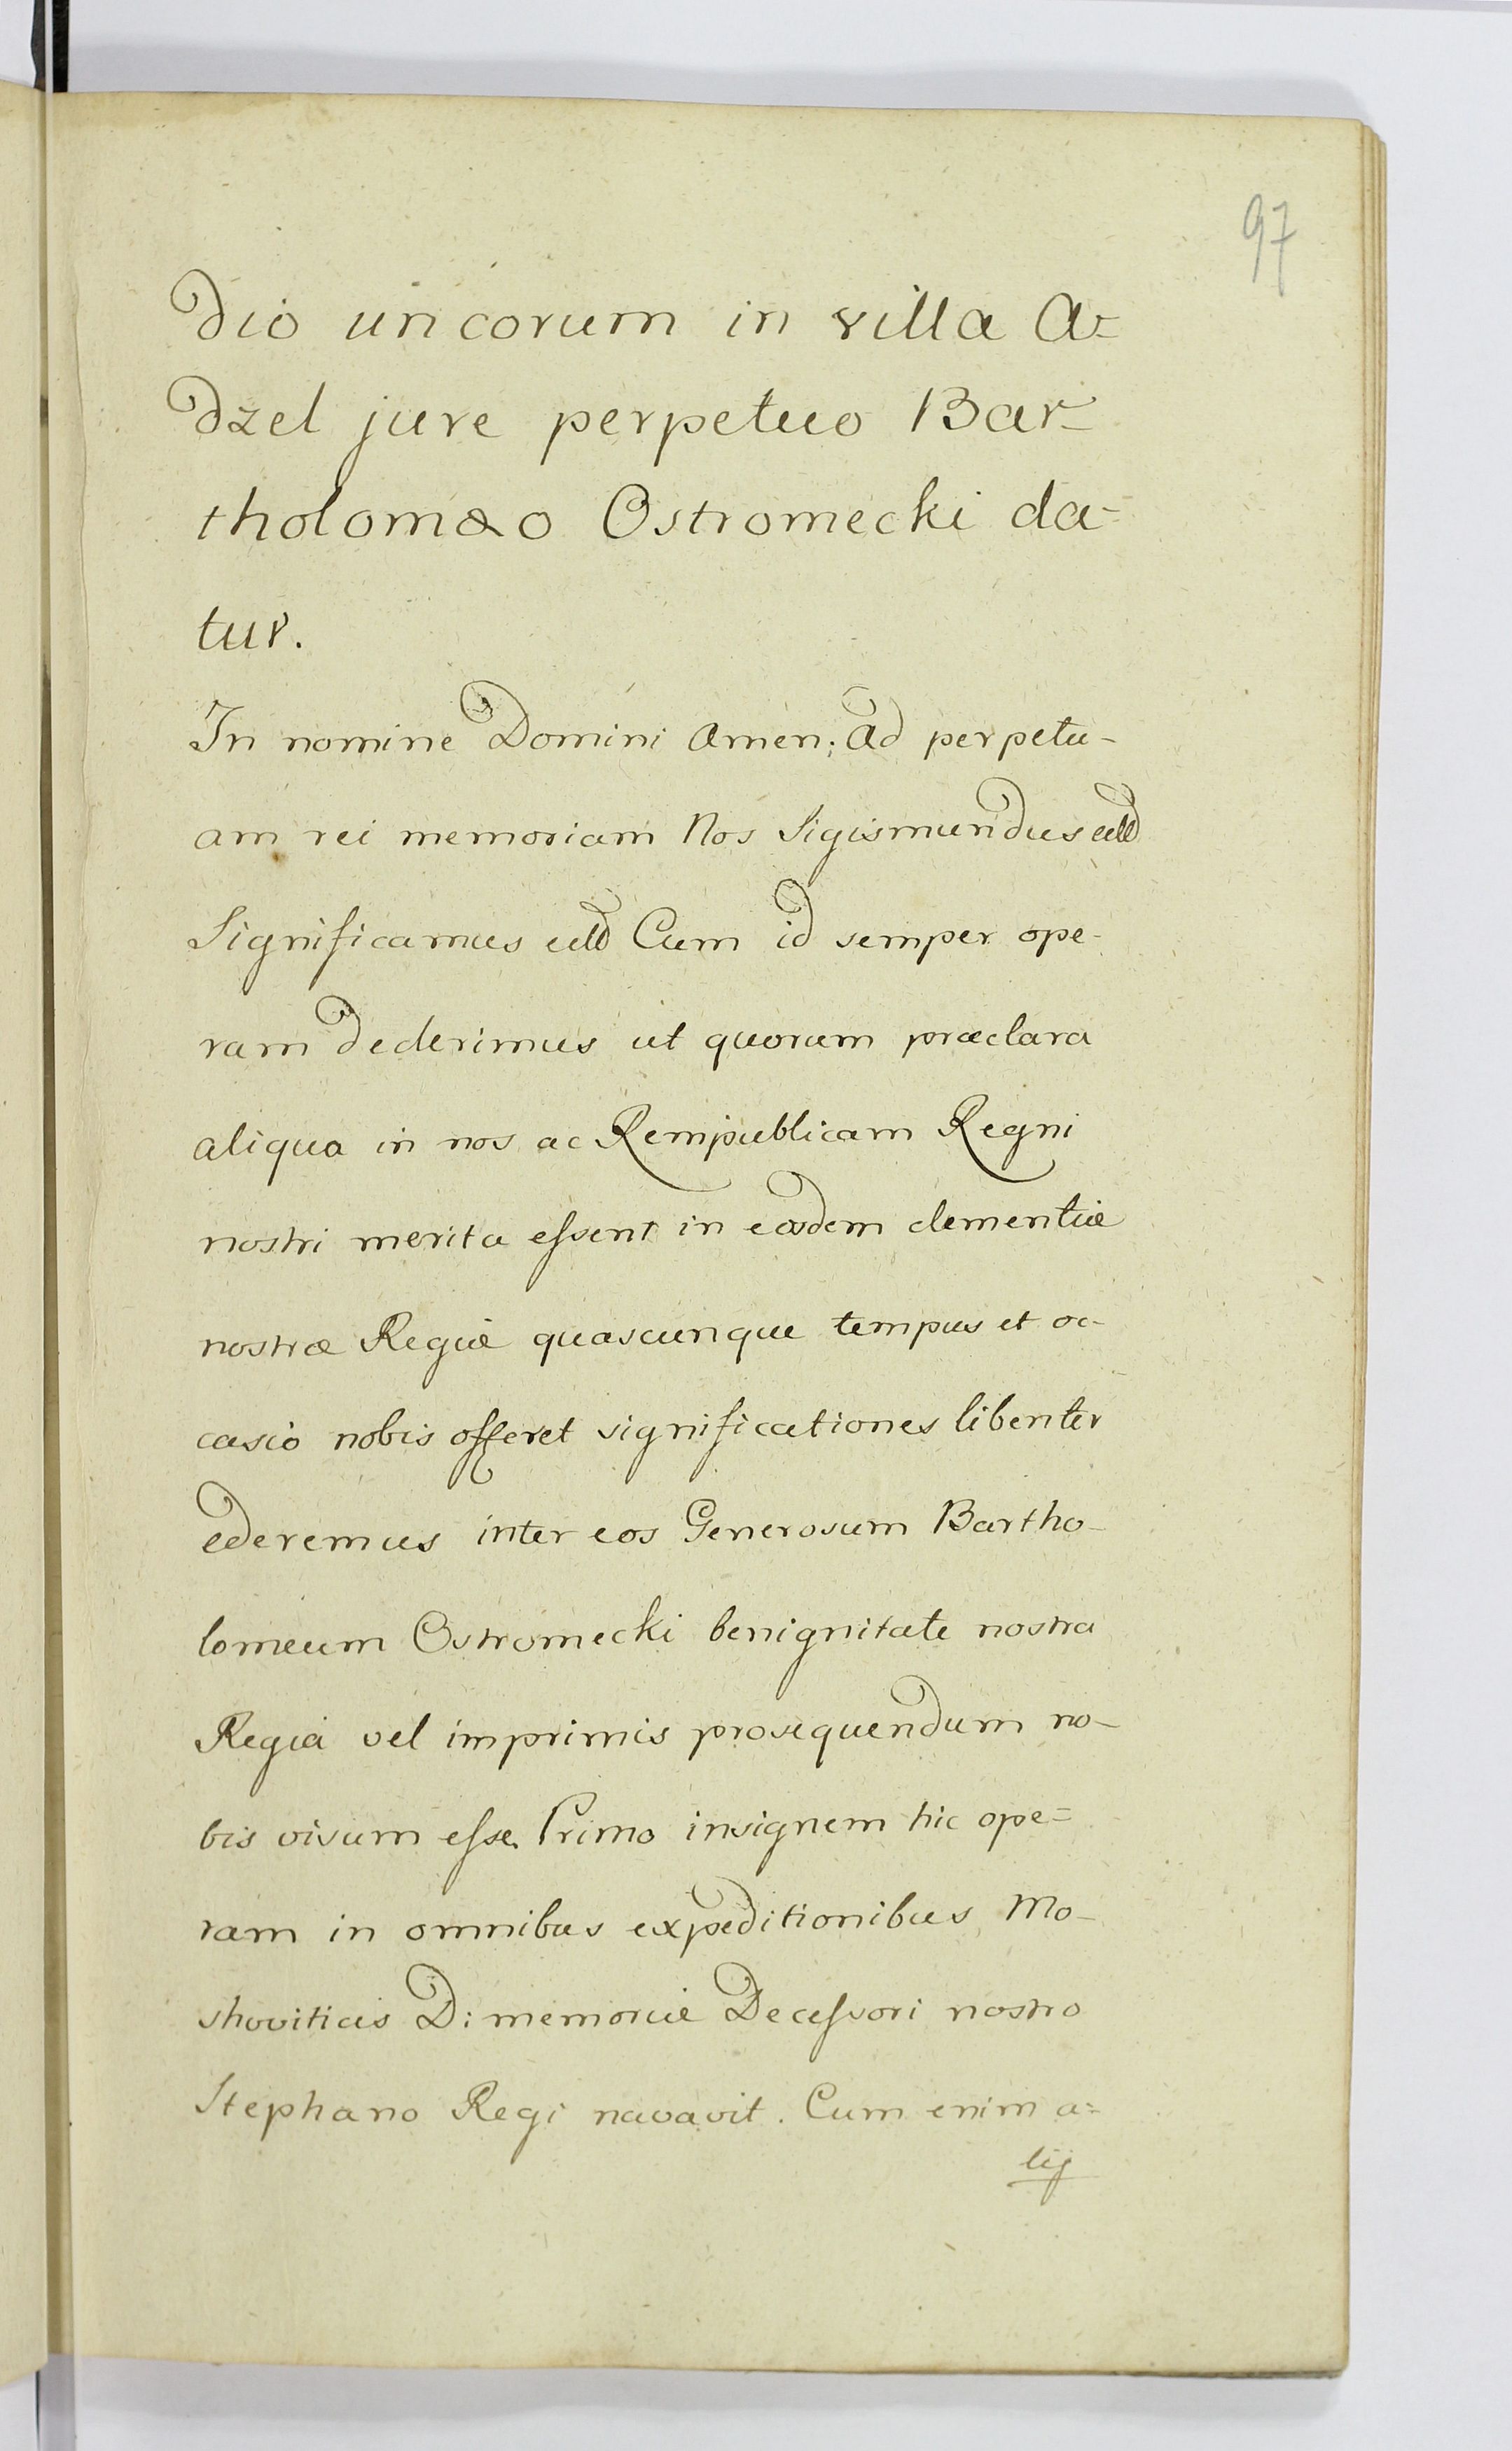 97
dio uncorum in villa A=
dzel jure perpetuo Bar-
tholomæo Ostromecki da=
tur.
In nomine Domini Amen. Ad perpetu-
am rei memoriam Nos Sigismundus
Significamus Cum id semper ope-
ram dederimus ut quorum præclara
aliqua in nos ac Rempublicam Regni
nostri merita essent in eosdem clementiæ
nostræ Regiæ quascunque tempus et oc-
casio nobis offeret significationes libenter
ederemus inter eos Generosum Bartho-
lomeum Ostromecki benignitate nostra
Regia vel imprimis prosequendum no-
bis visum esse. Primo insignem hic ope=
ram in omnibus expeditionibus Mo-
shoviticis D: memoriæ Decessori nostro
Stephano Regi navavit. Cum enim a=
lij